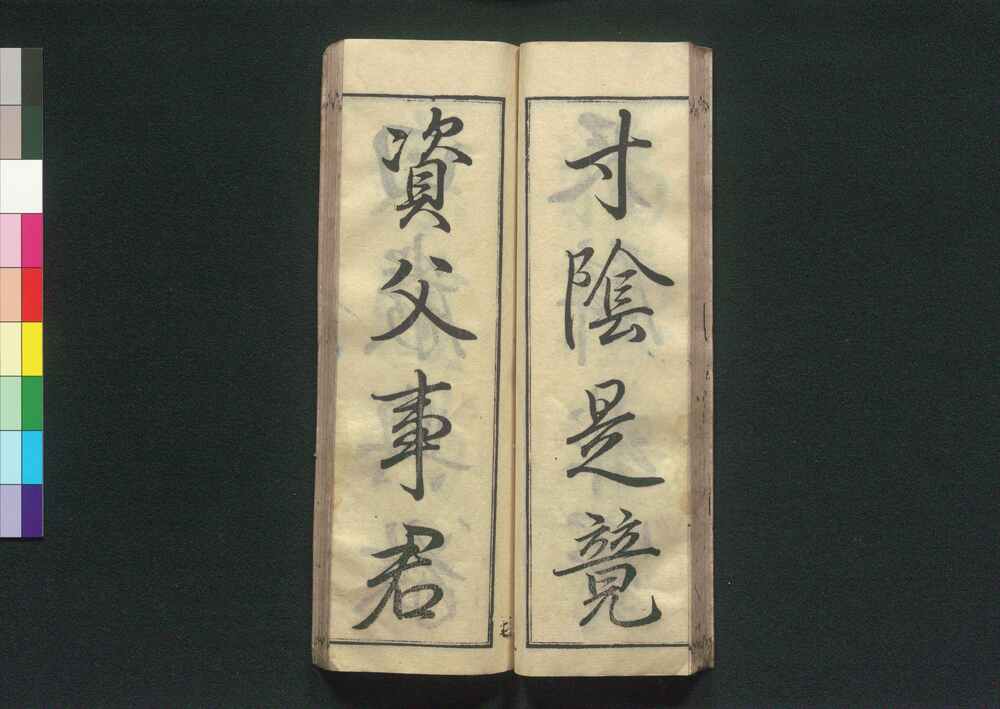 寸陰是競
資父事君